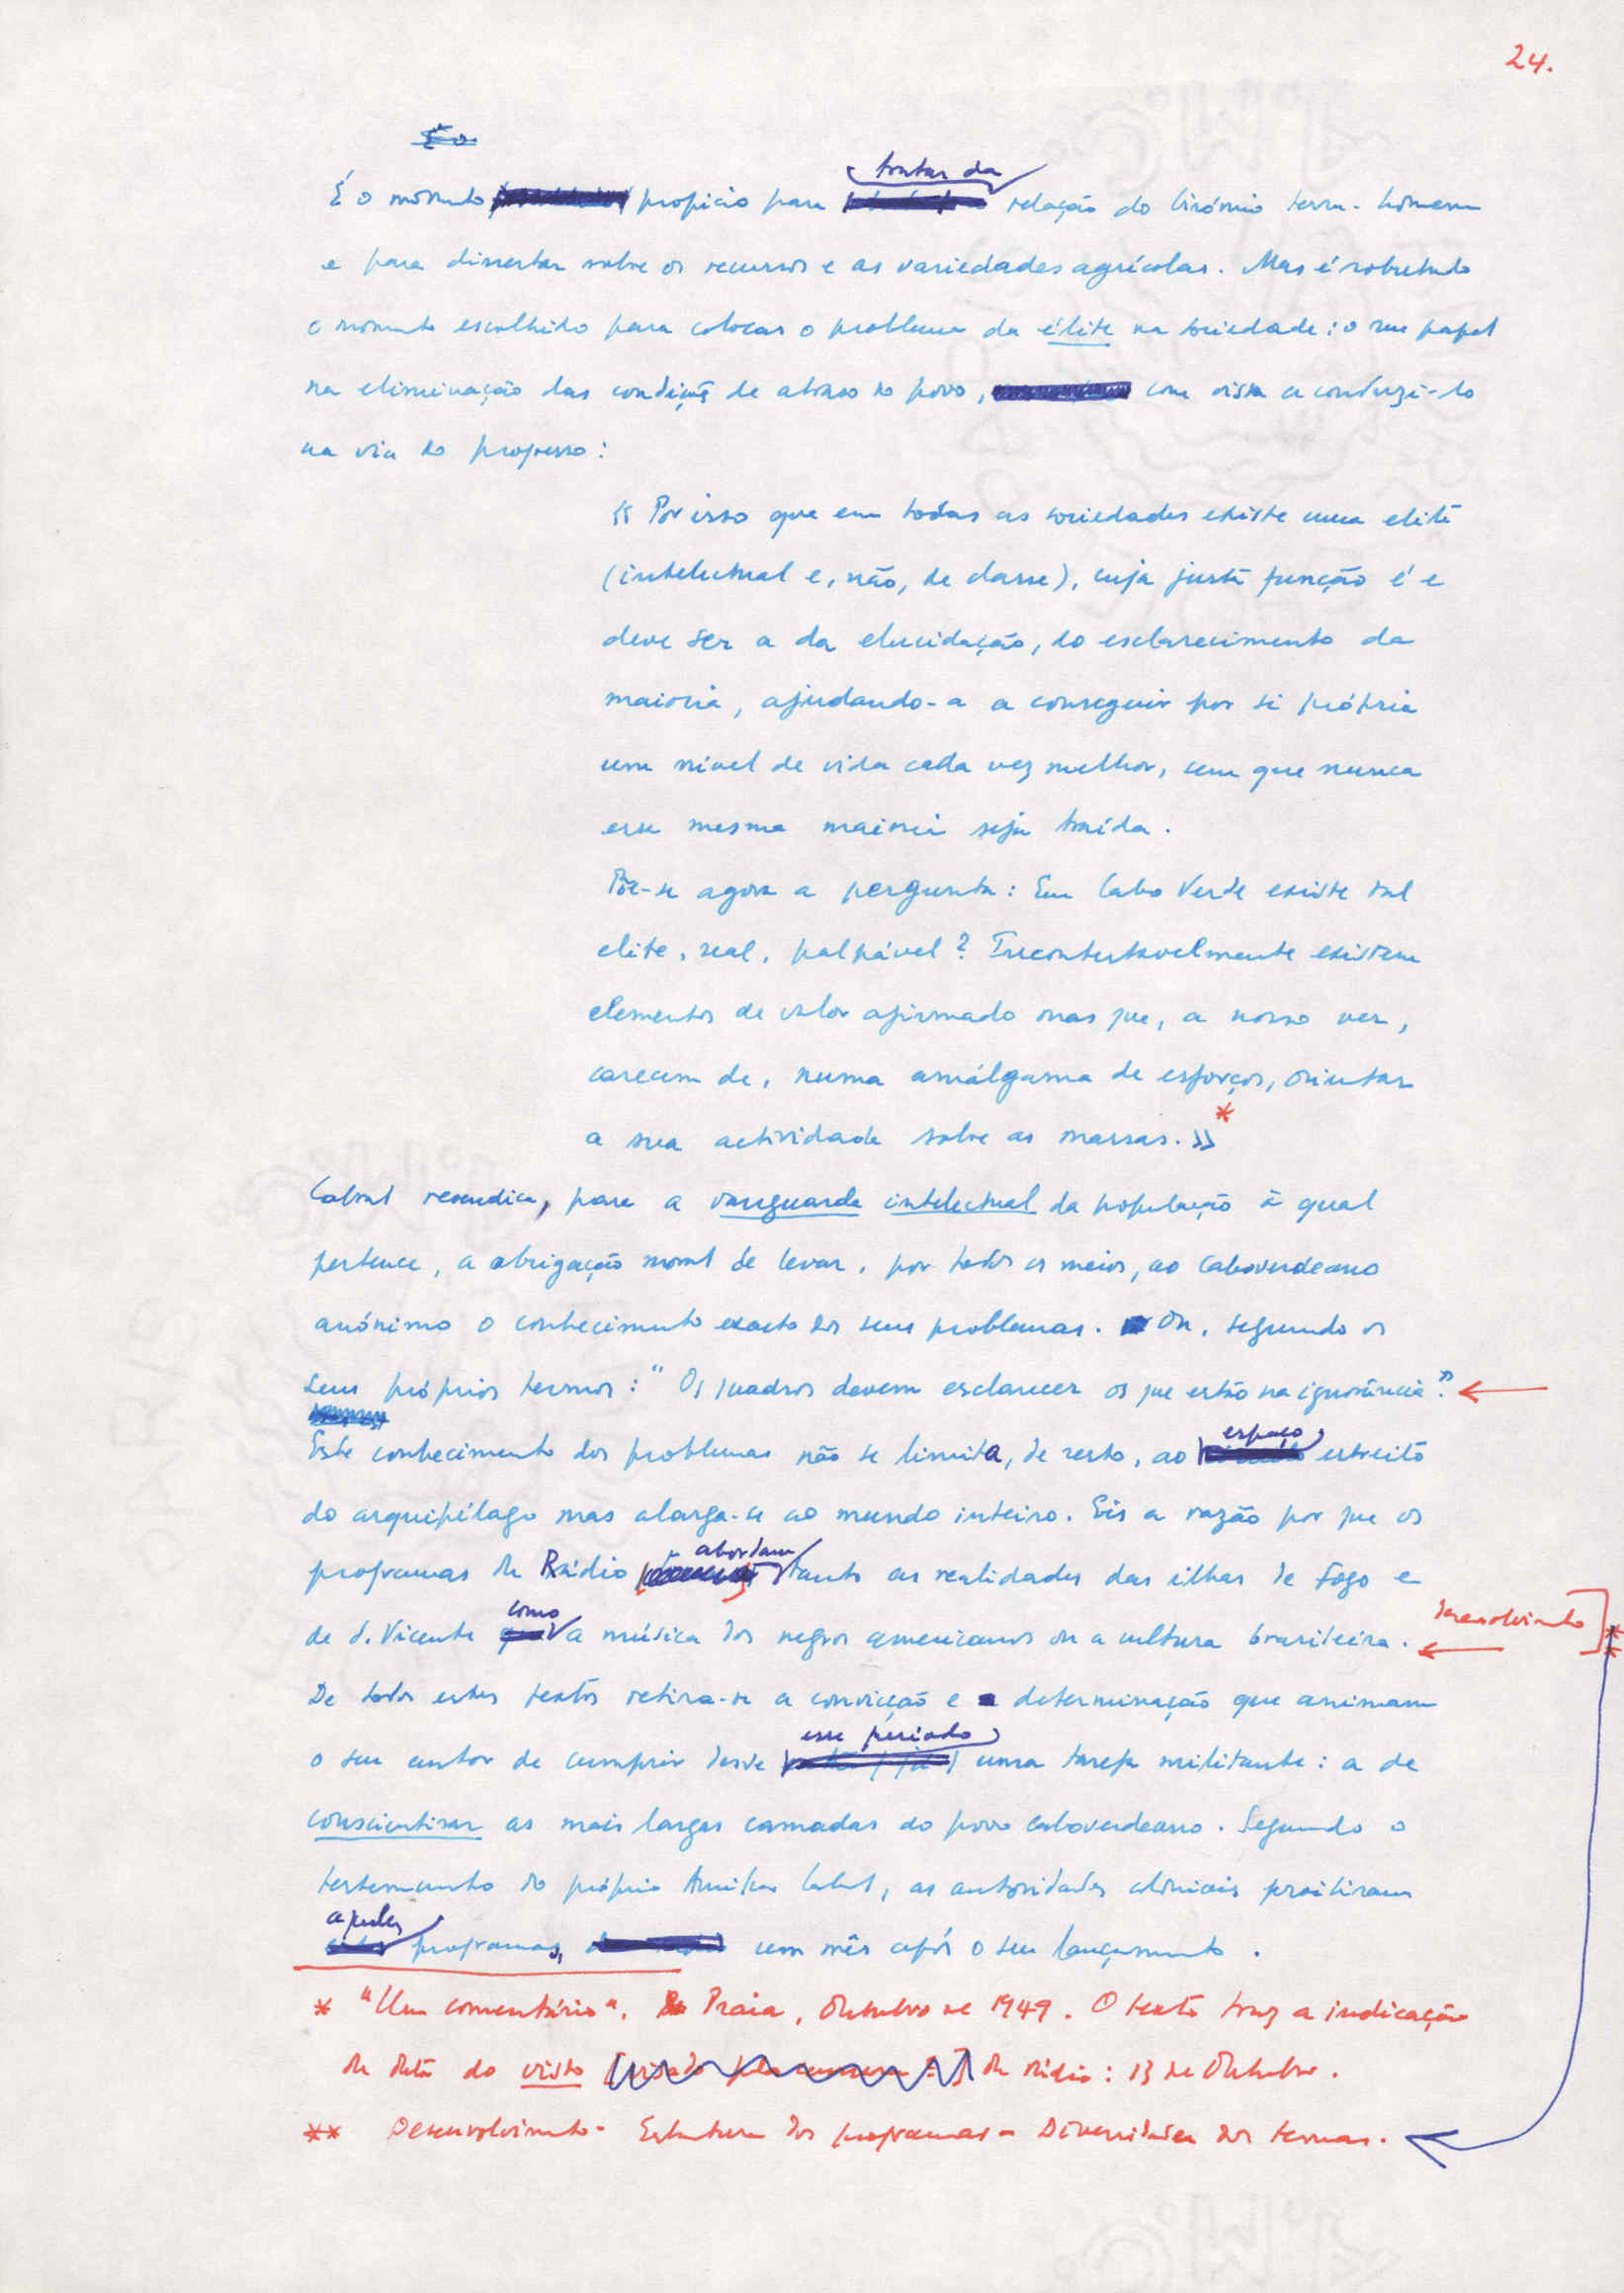 24.
É o
É o momento propício para tratar da relação do binómio terra-homem
e para dissertar sobre os recursos e as variedades agrícolas. Mas é sobretudo
o momento escolhido para colocar o problema da élite na sociedade: o seu papel
na eliminação das condições de atraso do povo, com vista a conduzi-lo
na via do progresso:
« Por isso que em todas as sociedades existe uma elite
(intelectual e, não, de classe), cuja justa função é e
deve ser a da elucidação, do esclarecimento da
maioria, ajudando-a a conseguir por si própria
um nível de vida cada vez melhor, sem que nunca
essa mesma maioria seja traída.
Põe-se agora a pergunta: Em Cabo Verde existe tal
elite, real, palpável? Incontestavelmente existem
elementos de valor afirmado mas que, a nosso ver,
carecem de, numa amálgama de esforços, orientar
a sua actividade sobre as massas. » *
Cabral reivindica, para a vanguarda intelectual da população à qual
pertence, a obrigação moral de levar, por todos os meios, ao caboverdeano
anónimo o conhecimento exacto dos seus problemas. Ou, segundo os
seus próprios termos: "Os quadros devem esclarecer os que estão na ignorância".
Este conhecimento dos problemas não se limita, de resto, ao espaço estreito
do arquipélago mas alarga-se ao mundo inteiro. Eis a razão por que os
programas da Rádio abordam tanto as realidades das ilhas de Fogo e
de S. Vicente como a música dos negros americanos ou a cultura brasileira. desenvolvimento **
De todos estes textos retira-se a convicção e a determinação que animam
o seu autor de cumprir desde esse período uma tarefa militante: a de
conscientizar as mais largas camadas do povo caboverdeano. Segundo o
testemunho do próprio Amílcar Cabral, as autoridades coloniais proibiram
aqueles programas, um mês após o seu lançamento.
* "Um comentário", Praia, Outubro de 1949. O texto traz a indicação
da data do visto [visado pela censura ?] da rádio: 13 de Outubro.
** Desenvolvimento - Estrutura dos programas - Diversidades dos temas.